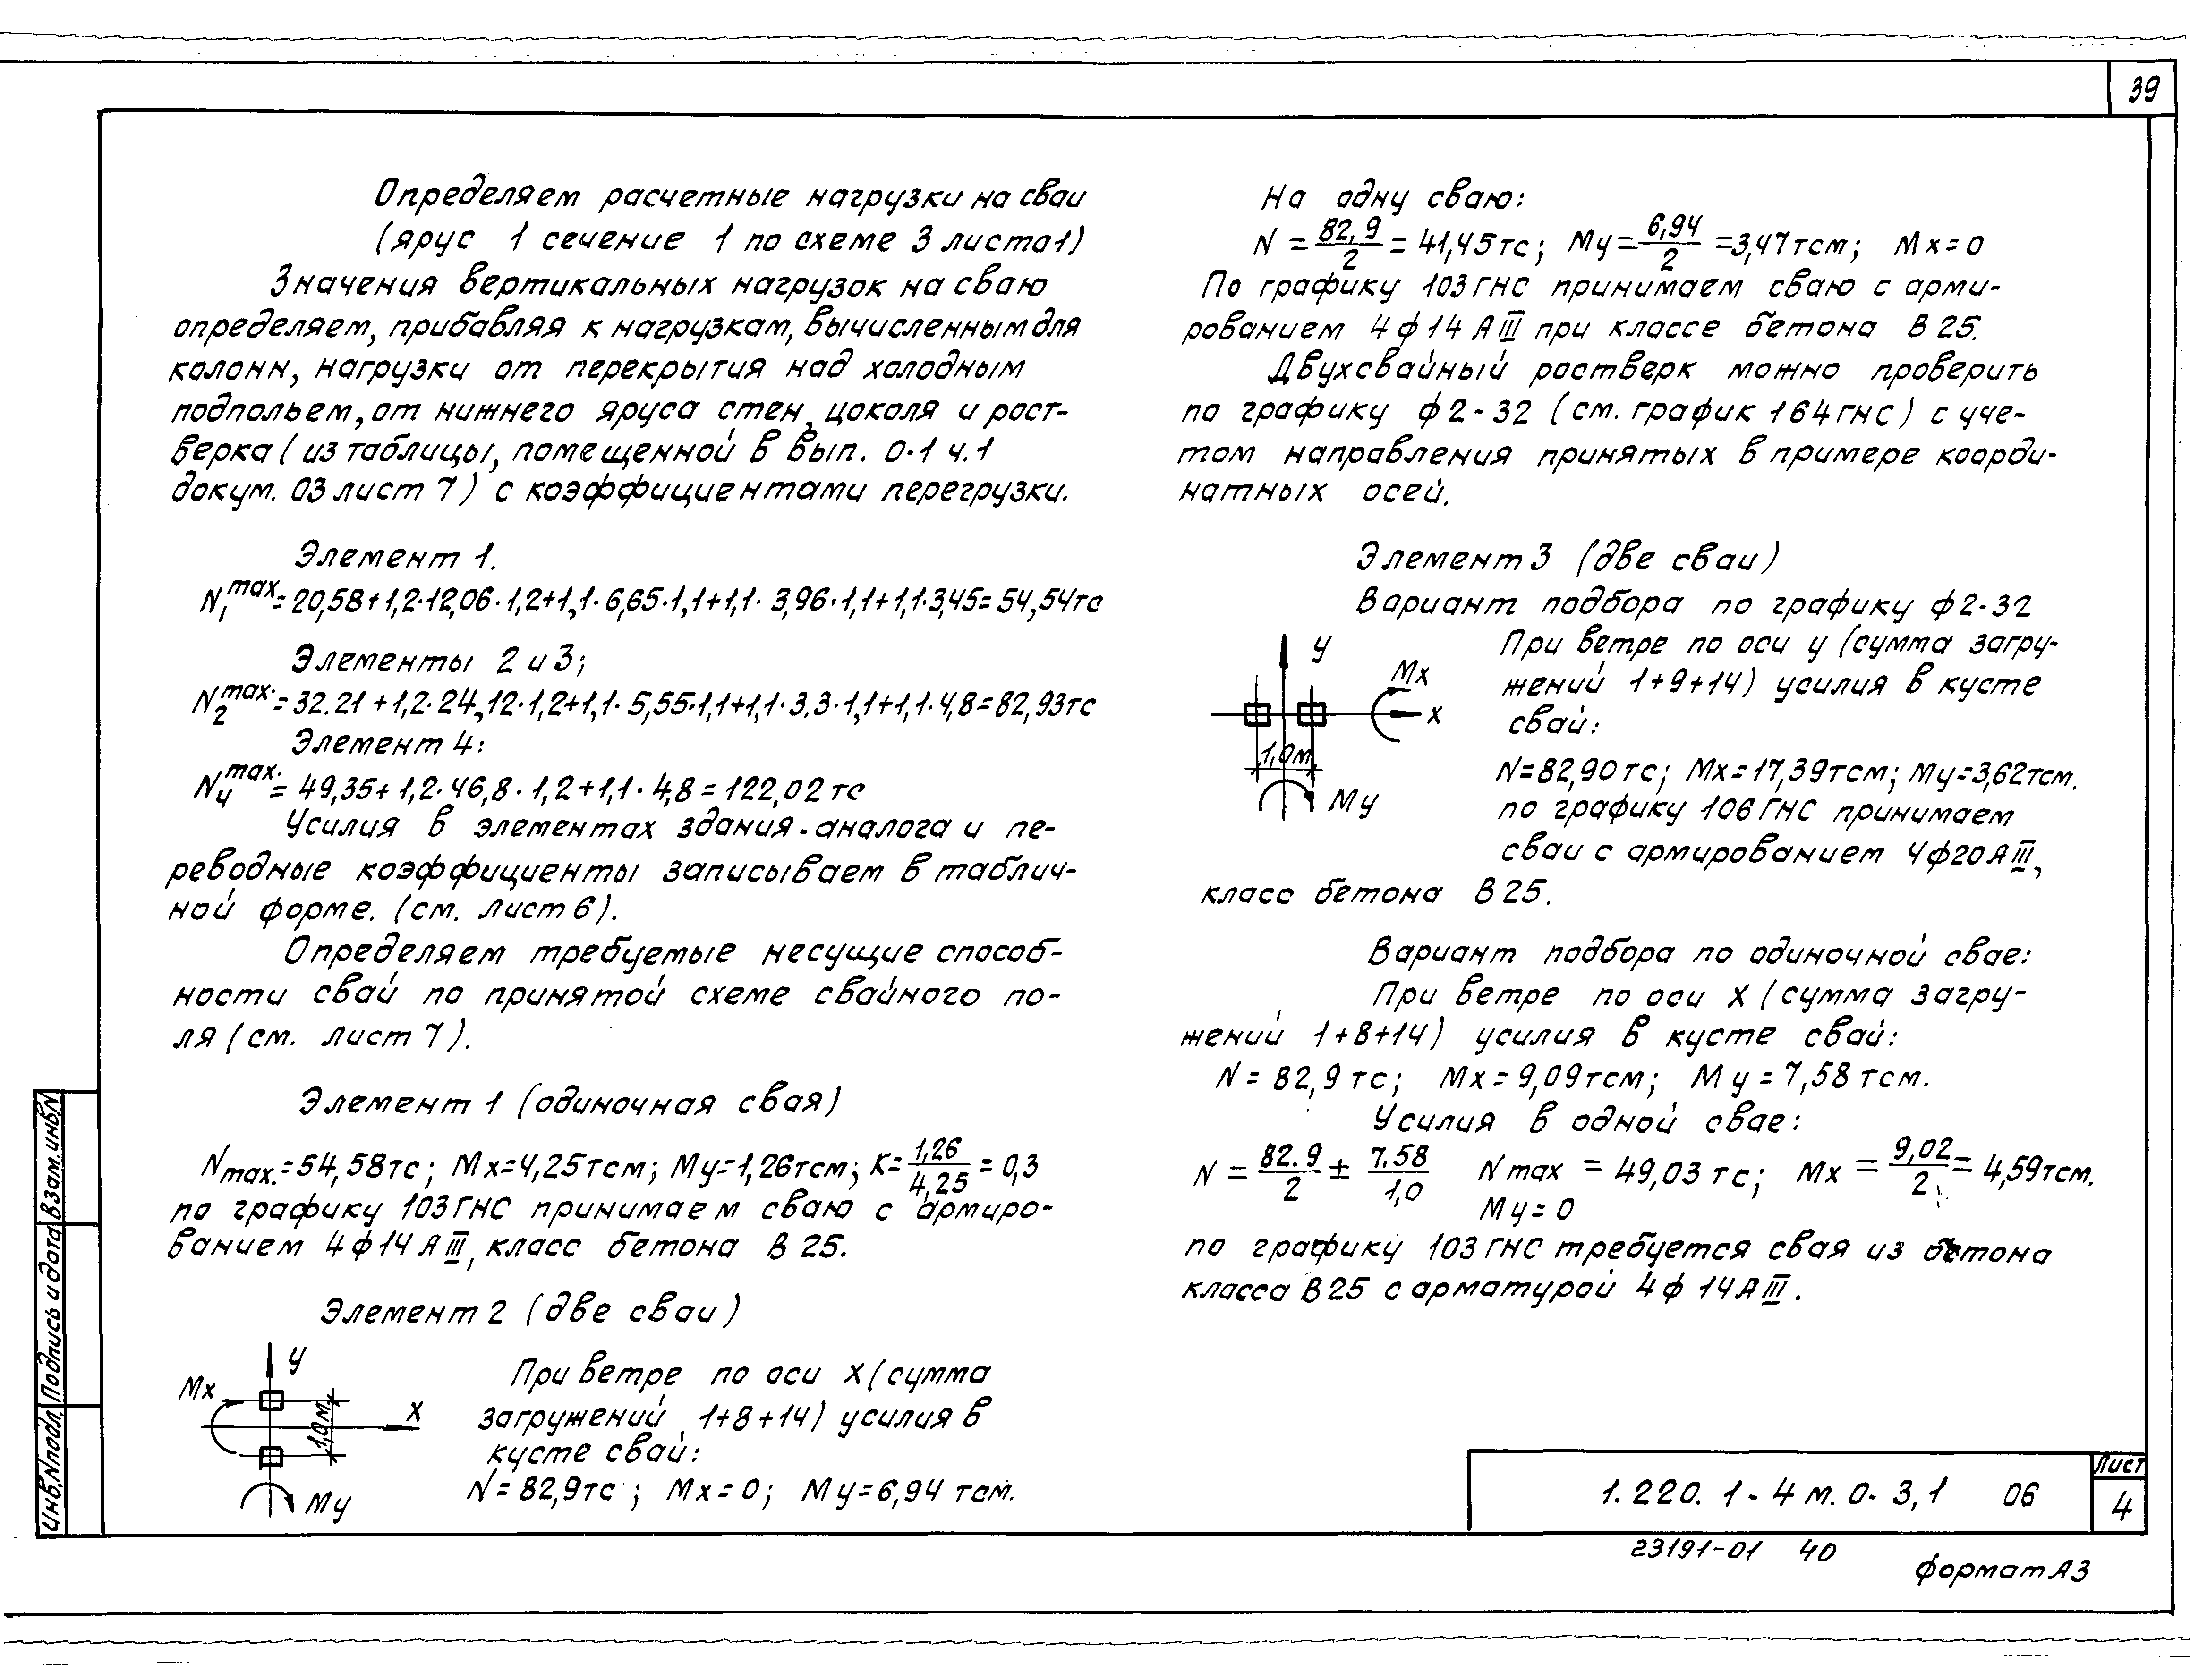 39
Определяем расчетные нагрузки на сваи
(ярус 1 сечение 1 по схеме 3 листа1)
Значения вертикальных нагрузок на сваю
определяем, прибавляя к нагрузкам, вычисленным для
колонн, нагрузки от перекрытия над холодным
подпольем, от нижнего яруса стен, цоколя и рост-
верка (из таблицы, помещенной в вып. 0-1 ч.1
докум. 03 лист 7) с коэффициентами перегрузки.
Элемент 1.
N₁ max. = 20,58+1,2·12,06·1,2+1,1·6,65·1,1+1,1·3,96·1,1+1,1·3,45=54,54тс
Элементы 2 и 3;
N₂ max. = 32.21+1,2·24,12·1,2+1,1·5,55·1,1+1,1·3.3·1,1+1,1·4,8=82,93тс
Элемент 4:
N₄ max. = 49,35+1,2·46,8·1,2+1,1·4,8=122,02тс
Усилия в элементах здания-аналога и пе-
реводные коэффициенты записываем в таблич-
ной форме. (см. лист 6).
Определяем требуемые несущие способ-
ности свай по принятой схеме свайного по-
ля (см. лист 7).
Элемент 1 (одиночная свая)
Nmax.=54,58тс; Mx=4,25тсм; My=1,26тсм; K=1,26/4,25=0,3
по графику 103ГНС принимаем сваю с армиро-
ванием 4ф14АIII, класс бетона В 25.
Элемент 2 (две сваи)
y
Mx
x
1,0м
My
При ветре по оси x (сумма
загружений 1+8+14) усилия в
кусте свай:
N=82,9тс; Mx=0; My=6,94 тсм.
На одну сваю:
N=82,9/2=41,45тс; My=6,94/2=3,47тсм; Mx=0
По графику 103ГНС принимаем сваю с арми-
рованием 4ф14АIII при классе бетона В 25.
Двухсвайный ростверк можно проверить
по графику ф2-32 (см. график 164ГНС) с уче-
том направления принятых в примере коорди-
натных осей.
Элемент 3 (две сваи)
Вариант подбора по графику ф2-32
y
Mx
x
1,0м
My
При ветре по оси y (сумма загру-
жений 1+9+14) усилия в кусте
свай:
N=82,90тс; Mx=17,39тсм; My=3,62тсм.
по графику 106ГНС принимаем
сваи с армированием 4ф20АIII,
класс бетона В 25.
Вариант подбора по одиночной свае:
При ветре по оси x (сумма загру-
жений 1+8+14) усилия в кусте свай:
N=82,9тс; Mx=9,09тсм; My=7,58тсм.
Усилия в одной свае:
N=82.9/2±7.58/1,0 Nmax=49,03тс; Mx=9,02/2=4,59тсм.
My=0
по графику 103ГНС требуется свая из бетона
класса В25 с арматурой 4ф14АIII.
Инв.N подл. Подпись и дата Взам.инв.N
1.220.1-4м.0-3,1 06
Лист
4
23191-01 40
формат А3